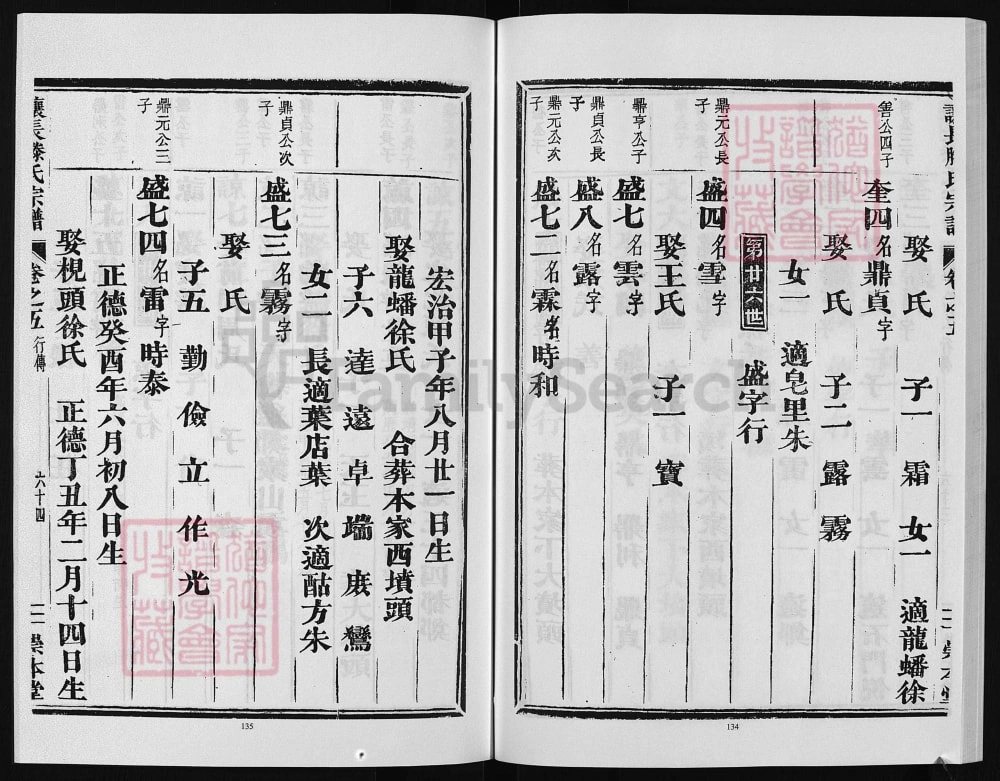 娶　氏　子一　霜　女一　適龍蟠徐
善公四子
奎四名鼎貞字
娶　氏　子二　露　霧
女一　適皂里朱
第廿六世　盛字行
鼎元公長子
盛四名雪字
娶王氏　子一　寶
鼎亨公子
盛七名雲字
鼎貞公長子
盛八名露字
鼎元公次子
盛七二名霖字時和
134
宏治甲子年八月廿一日生
娶龍蟠徐氏　合葬本家西墳頭
子六　達　遠　卓　端　鸞
女二　長適葉店葉　次適酤方朱
鼎貞公次子
盛七三名霧字
娶　氏
子五　勤　儉　立　作　光
鼎元公三子
盛七四名雷字時泰
正德癸酉年六月初八日生
娶梘頭徐氏　正德丁丑年二月十四日生
滕氏宗譜　卷之五　行傳　六十四　崇本堂
135
FamilySearch